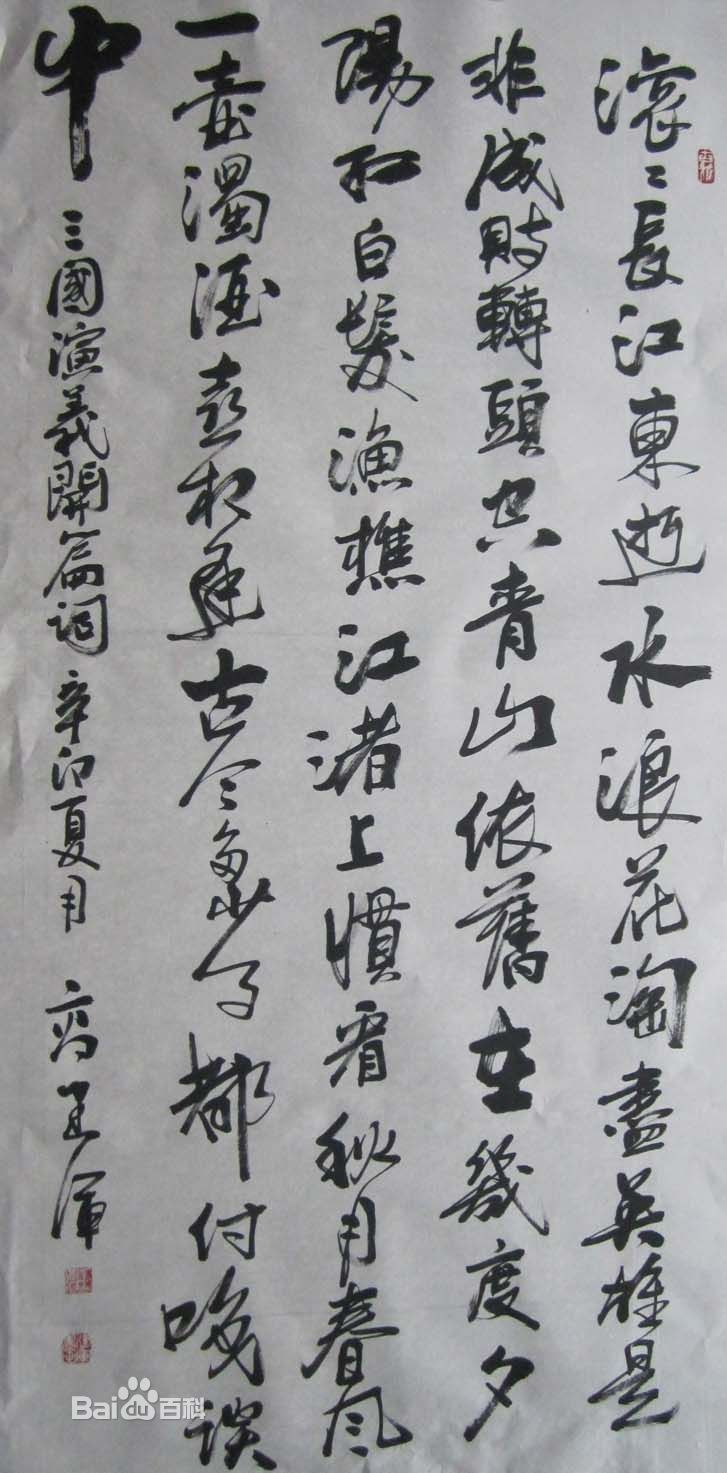 滚〻長江東逝水浪花淘盡英雄是
非成敗轉頭空青山依舊在幾度夕
陽紅白髮漁樵江渚上慣看秋月春風
一壺濁酒喜相逢古今多少事都付咲談
中 三國演義開篇詞 辛卯夏月
Bai du 百科